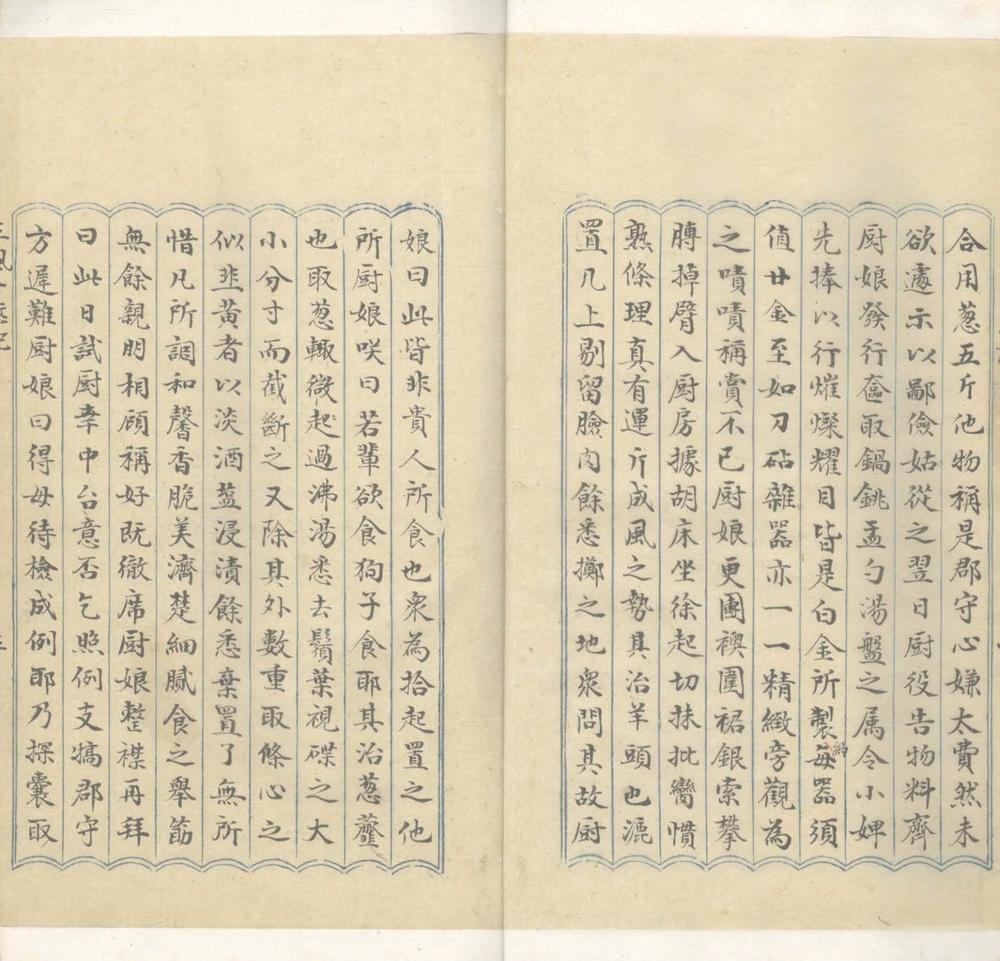 合用葱五斤他物稱是郡守心嫌太費然未
欲遽示以鄙儉姑從之翌日厨役告物料齊
厨娘發行奩取鍋銚盂勺湯盤之属令小婢
先捧以行熣燦耀目皆是白金所製每器須
約
值廿金至如刀砧雜器亦一一精緻旁觀為
之嘖嘖稱賞不已厨娘更團襖圍裙銀索攀
膊掉臂入厨房據胡床坐徐起切抹批臠慣
熟條理真有運斤成風之勢其治羊頭也漉
置几上剔留臉肉餘悉擲之地衆問其故厨
娘曰此皆非貴人所食也衆為拾起置之他
所厨娘咲曰若輩欲食狗子食耶其治葱虀
也取葱輙微起過沸湯悉去鬚葉視碟之大
小分寸而截斷之又除其外數重取條心之
似韭黄者以淡酒䀋浸漬餘悉棄置了無所
惜凡所調和馨香脆美濟楚細膩食之舉筯
無餘親朋相顧稱好既徹席厨娘整襟再拜
曰此日試厨幸中台意否乞照例支犒郡守
方遲難厨娘曰得毋待檢成例耶乃探囊取